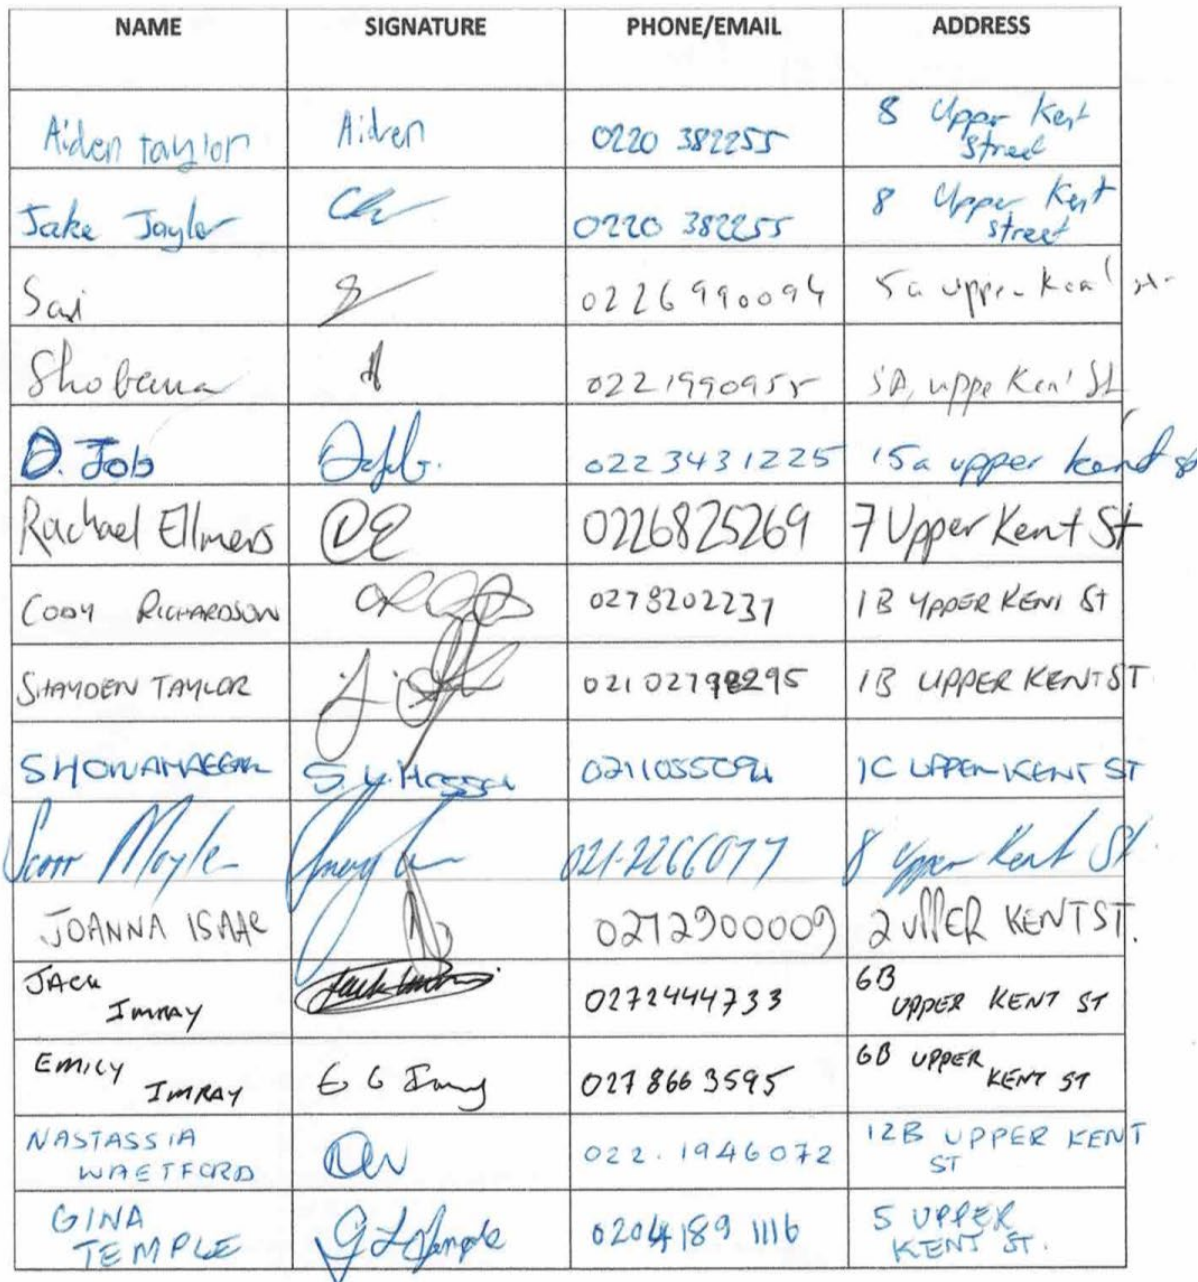 NAME SIGNATURE PHONE/EMAIL ADDRESS
Aiden taylor Aiden 0220 382255 8 Upper Kent
street
Jake Taylor 0220 382255 8 Upper Kent
street
Sai 0226990094 5a upper Kent st
Shobana 0221990955 5A, uppe Kent St
D. Job 0223431225 15a upper kent st
Rachael Ellmers RE 0226825269 7 Upper Kent St
CODY RICHARDSON 0278202237 1B UPPER KENT ST
SHAYDEN TAYLOR 02102798295 1B UPPER KENT ST
SHONA 1C UPPER KENT ST
Scott Moyle 021-2266077 8 Upper Kent St
JOANNA ISAAC 0272900009 2 UPPER KENT ST.
JACK 6B
IMRAY Jack Imray 0272444733 UPPER KENT ST
EMILY 6B UPPER
IMRAY E G Imray 0278663595 KENT ST
NASTASSIA 12B UPPER KENT
WAETFORD 022.1946072 ST
GINA 5 UPPER
TEMPLE G L Temple 0204189 1116 KENT ST.